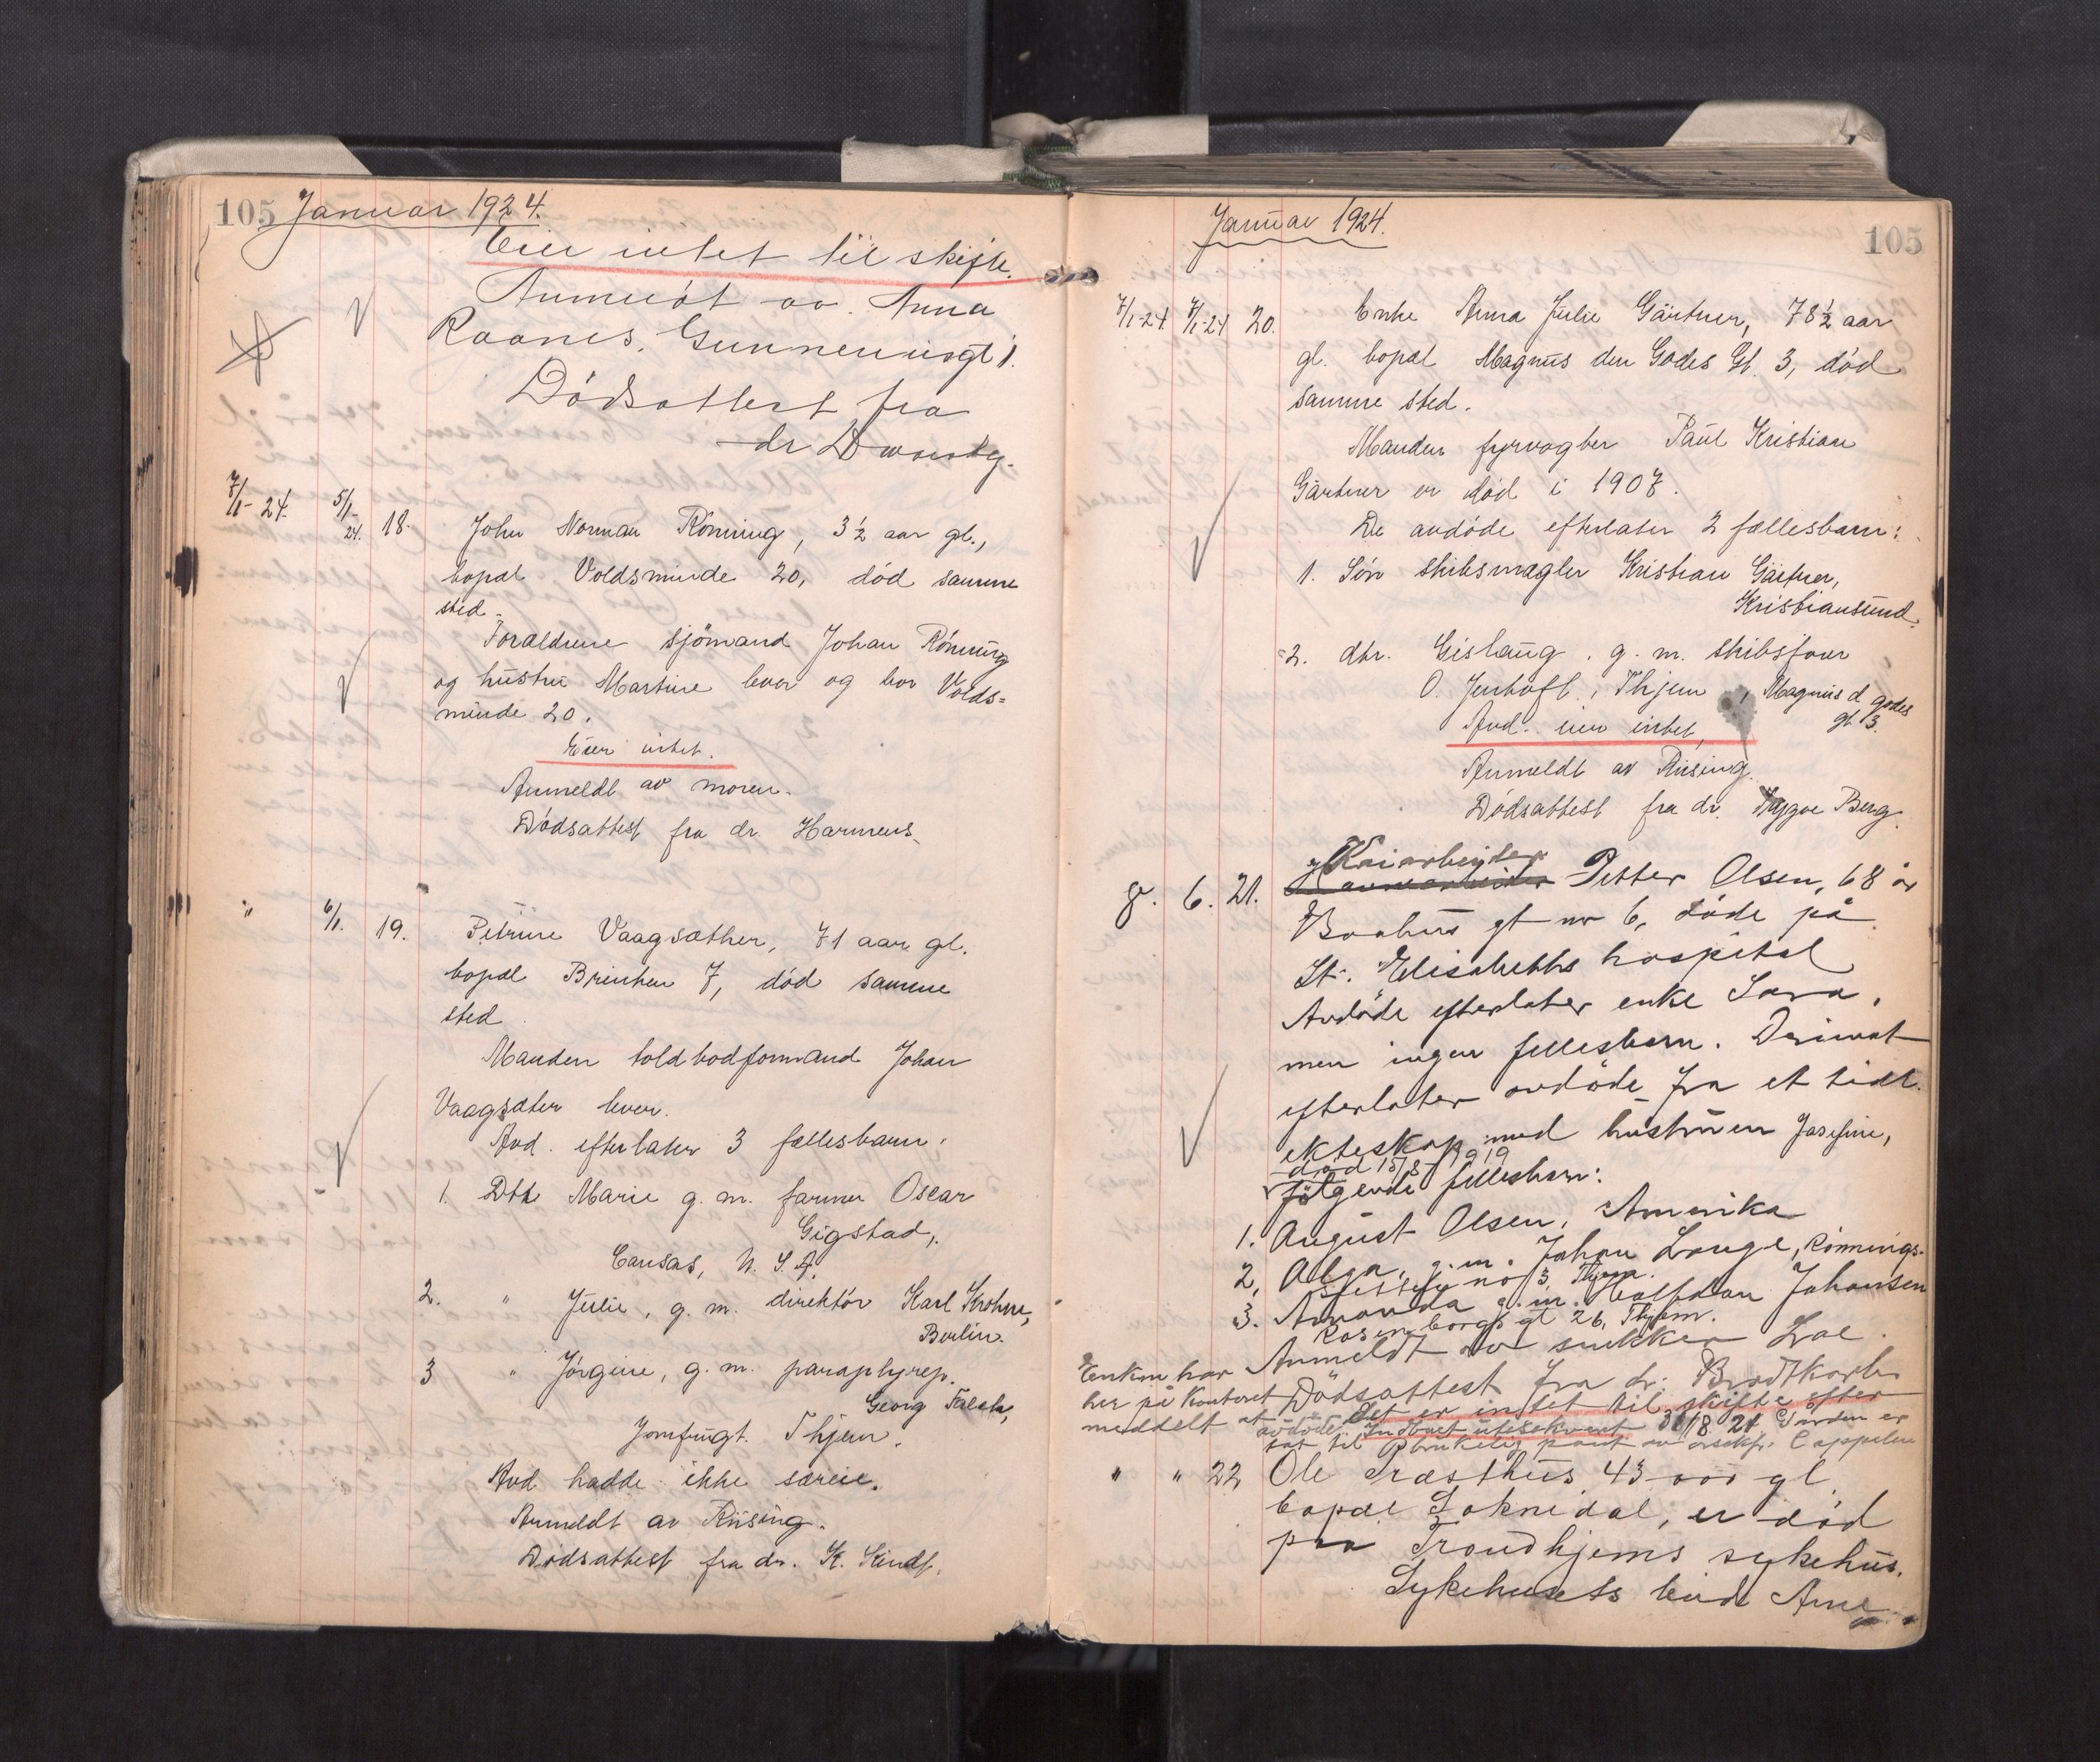 105 Januar 1924.
Eier intet til skifte.
Anmeldt av Anna
Raanes, Gunnerusgt 1.
Dödsattest fra
dr
7/1-24. 5/1-24. 18. John Norman Rönning, 3½ aar gl.,
bopæl Voldsminde 20, död samme
sted.
Forældrene sjömand Johan Rönning
og hustru Martine lever og bor Volds=
minde 20.
Eier intet.
Anmeldt av moren.
Dödsattest fra dr. Harmens
" 6/1. 19. Petrine Vaagsæther, 71 aar gl.
bopæl Brinken 7, död samme
sted.
Manden toldbodformand Johan
Vaagsæter lever.
Avd. efterlater 3 fællesbarn:
1. Dtr Marie g. m. farmer Oscar
Gigstad,
Cansas, U. S. A.
2. " Julie, g. m. direktör Karl Krohne,
Berlin.
3 " Jörgine, g. m. paraplyrep.
Georg Falch,
Jomfrugt. Thjem.
Avd hadde ikke særeie.
Anmeldt av Riising.
Dödsattest fra dr. K. Lindt.
Januar 1924.
105
7/1-24 7/1-24 20. Enke Anna Julie Gärtner, 78½ aar
gl. bopæl Magnus den Godes Gt. 3, död
samme sted.
Manden fyrvogter Paul Kristian
Gärtner er död i 1907.
De avdöde efterlater 2 fællesbarn:
1. Sön skibsmægler Kristian Gärtner,
Kristiansund.
2. dtr. Gislaug, g. m. skibsförer
O. Jenhoft, Thjem, Magnus d godes
gt 3.
Avd. eier intet,
Anmeldt av Riising.
Dödsattest fra dr. Trygve Berg.
Kaiarbeider
8. 6. 21. Petter Olsen, 68 år
Baahus gt nr 6, döde på
St. Elisabeths hospital
Avdöde efterlater enke Sara,
men ingen fellesbarn. Derimot
efterlater avdöde fra et tidl.
ekteskap med hustruen Josefine,
död 15/8-1919
fölgende fellesbarn:
1. August Olsen, Amerika
2. Olga, g. m. Johan Lange, Rönnings-
no 3 Thjem.
3. Amanda g. m. Halfdan Johansen
Rosenborgs gt 26, Thjem.
Anmeldt av snekker Loe.
Enken har
Dödsattest fra dr. Brodtkorb
her på kontoret
Det er intet til skifte efter
meddelt at
avdöde. Indboet utlæskvert 30/8. 21 Gården er
sat til brukelig pant av Cappelen
" " 22 Ole Træsthus 43 aar gl.
bopæl Soknedal, er död
paa Trondhjems sykehus.
Sykehusets bud Arne